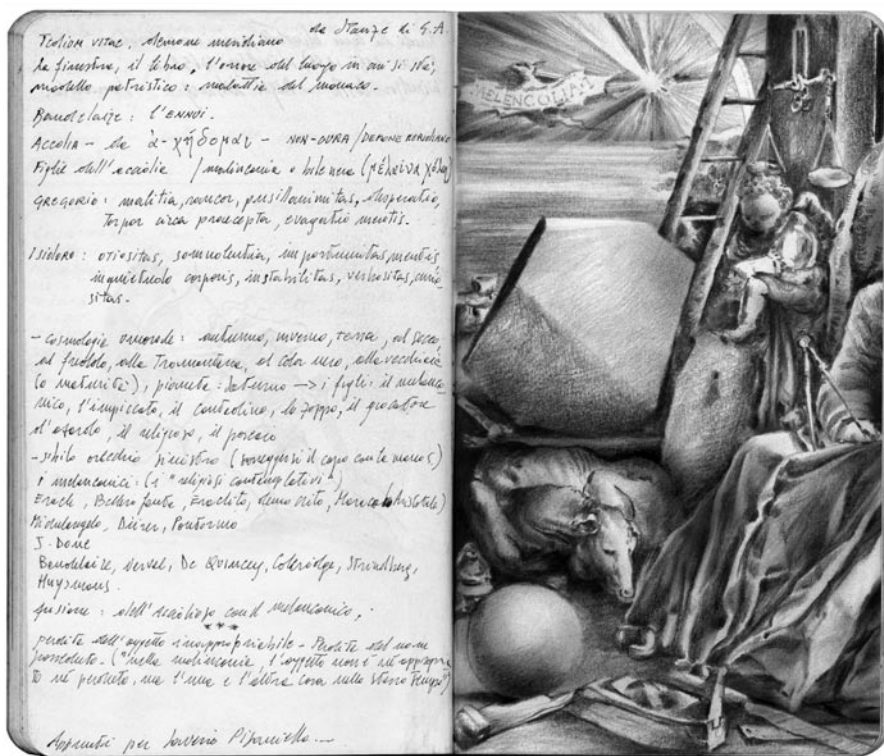 da Stanze di G.A.
Tedium vitae, demone meridiano
la finestra, il libro, l'orrore del luogo in cui si sta,
modello patristico: malattia del monaco.
Baudelaire: l'ENNUI.
ACCIDIA - da ἀ-χήδομαι - NON-CURA / DEMONE MERIDIANO
Figlie dell'acedia / malinconia o bile nera (μέλαινα χόλη)
GREGORIO: malitia, rancor, pusillanimitas, desperatio,
torpor circa praecepta, evagatio mentis.
Isidoro: otiositas, somnolentia, importunitas mentis
inquietudo corporis, instabilitas, verbositas, curio-
sitas.
- cosmologia umorale: autunno, inverno, terra, al secco,
al freddo, alla Tramontana, al color nero, alla vecchiaia
(o maturità), pianeta: Saturno → i figli: il melanco-
nico, l'impiccato, il contadino, lo zoppo, il giocatore
d'azzardo, il religioso, il porcaio
- orecchio sinistro (sorreggersi il capo con la mano)
i melanconici: (i "religiosi contemplativi")
Eracle, Bellerofonte, Eraclito, Democrito, (Aristotele)
Michelangelo, Dürer, Pontormo
J. Done
Baudelaire, Nerval, De Quincey, Coleridge, Strindberg,
Huysmans.
fusione: dell'accidioso con il melanconico,
***
perdita dell'oggetto inappropriabile - Perdita del non
posseduto - ("nella malinconia, l'oggetto non è né appropria
to né perduto, ma l'una e l'altra cosa nello stesso tempo")
Appunti per Saverio
MELENCOLIA I